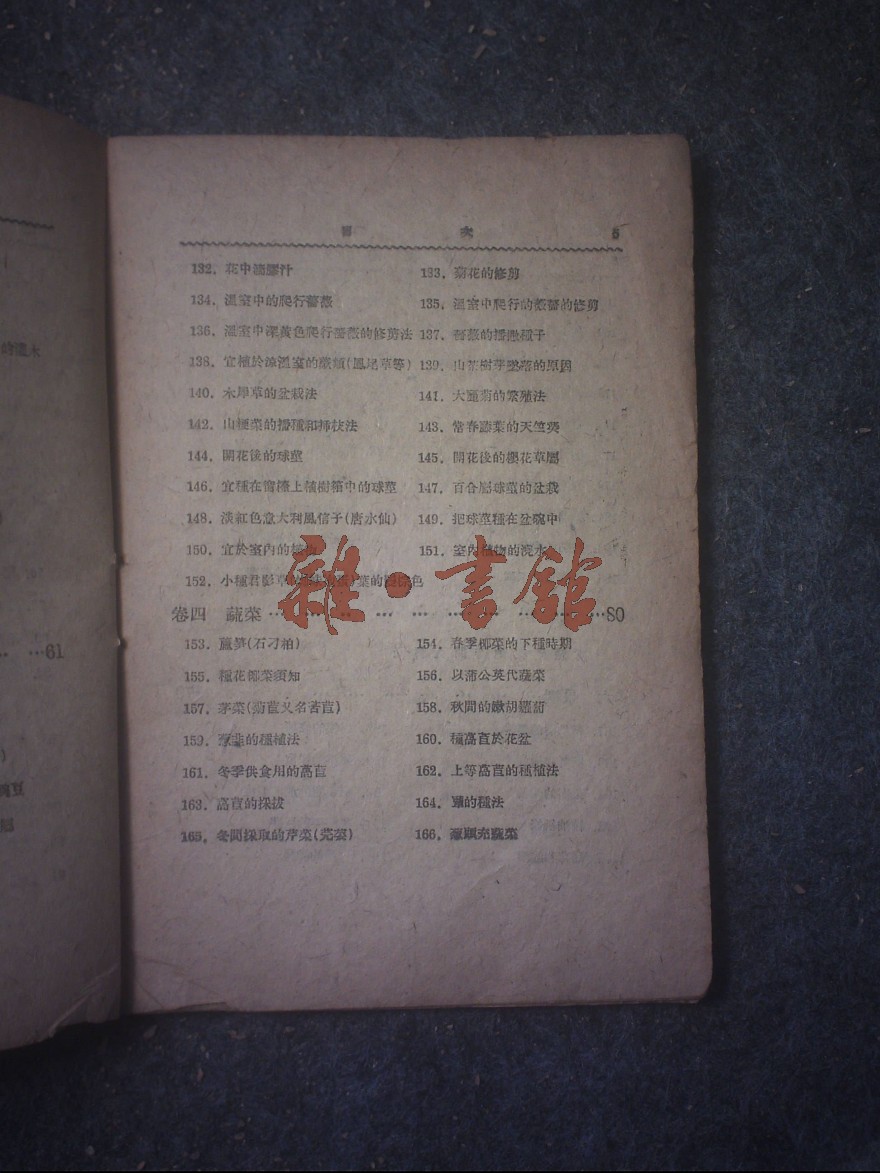 目 次 5
132. 花中 膠汁 133. 菊花的修剪
134. 溫室中的爬行薔薇 135. 溫室中爬行的薇薔的修剪
136. 溫室中深黃色爬行薔薇的修剪法 137. 薔薇的播撒種子
138. 宜種於涼溫室的蕨類(鳳尾草等) 139. 山茶樹芽墜落的原因
140. 木犀草的盆栽法 141. 大麗菊的繁殖法
142. 山梗菜的播種和揷枝法 143. 常春藤葉的天竺葵
144. 開花後的球莖 145. 開花後的櫻花草屬
146. 宜種在窗檯上植樹箱中的球莖 147. 百合屬球莖的盆栽
148. 淡紅色意大利風信子(唐水仙) 149. 把球莖種在盆碗中
150. 宜於室內的植物 151. 室內植物的澆水
152. 小種君影草 葉的 色
卷四 蔬菜 80
153. 蘆筍(石刁柏) 154. 春季椰菜的下種時期
155. 種花椰菜須知 156. 以蒲公英代蔬菜
157. 茅菜(菊苣又名苦苣) 158. 秋間的嫩胡蘿蔔
159. 韭的種植法 160. 種萵苣於花盆
161. 冬季供食用的萵苣 162. 上等萵苣的種植法
163. 萵苣的採拔 164. 的種法
165. 冬間採取的芹菜(芫荽) 166. 充蔬菜
雜·書舘
的灌木
…61
豌豆